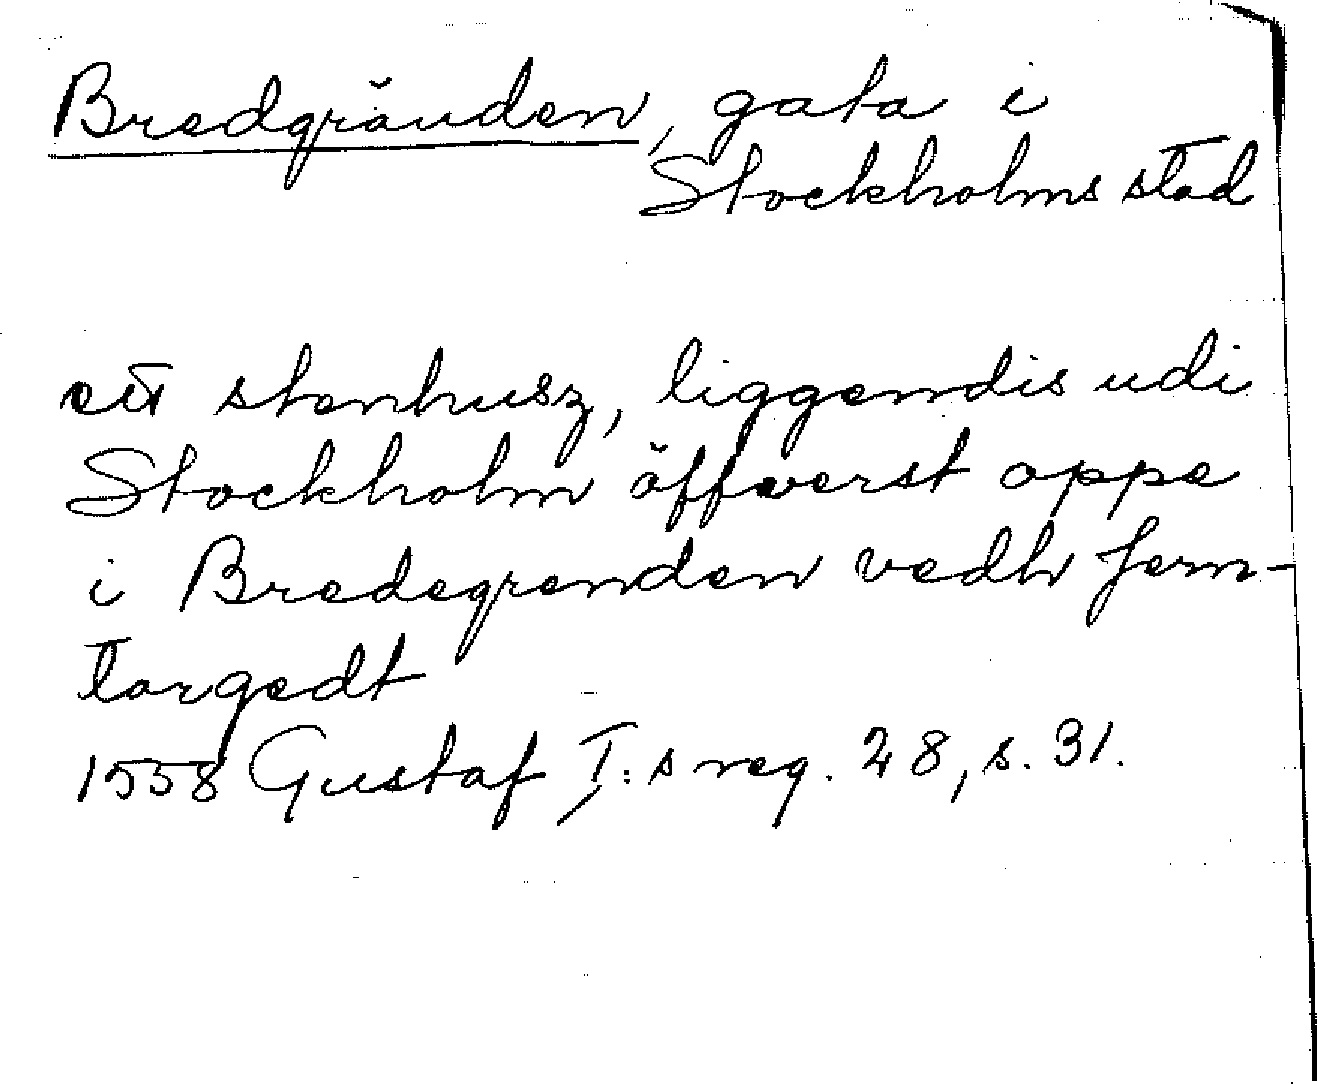 Bredgränden, gata i
Stockholms stad
ett stenhusz, liggendis udi
Stockholm öffverst oppe
i Bredegrenden vedh Jern-
torgedt
1558 Gustaf I:s reg. 28, s. 31.